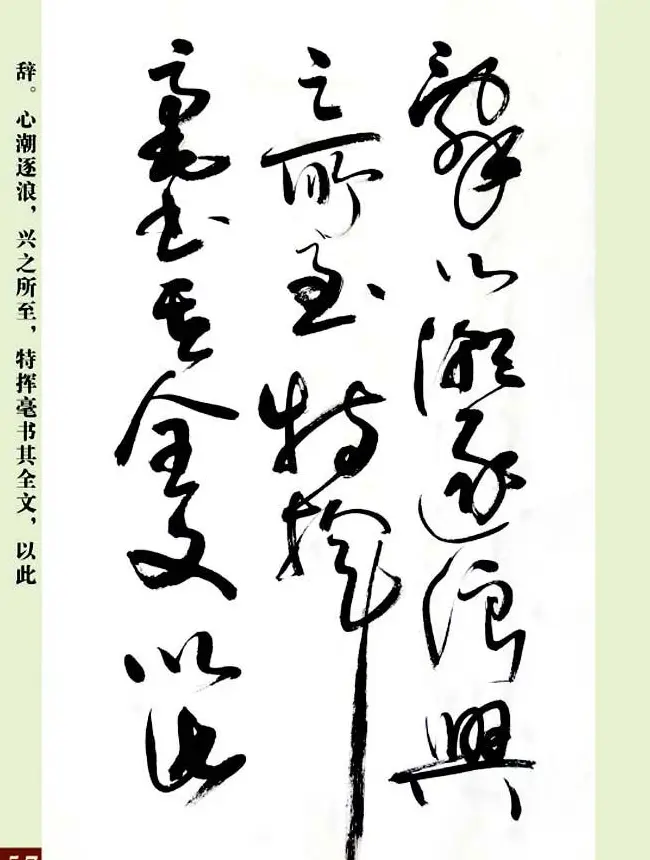 辭心潮逐浪興
之所至特揮
毫書其全文以此
辞。心潮逐浪，兴之所至，特挥毫书其全文，以此